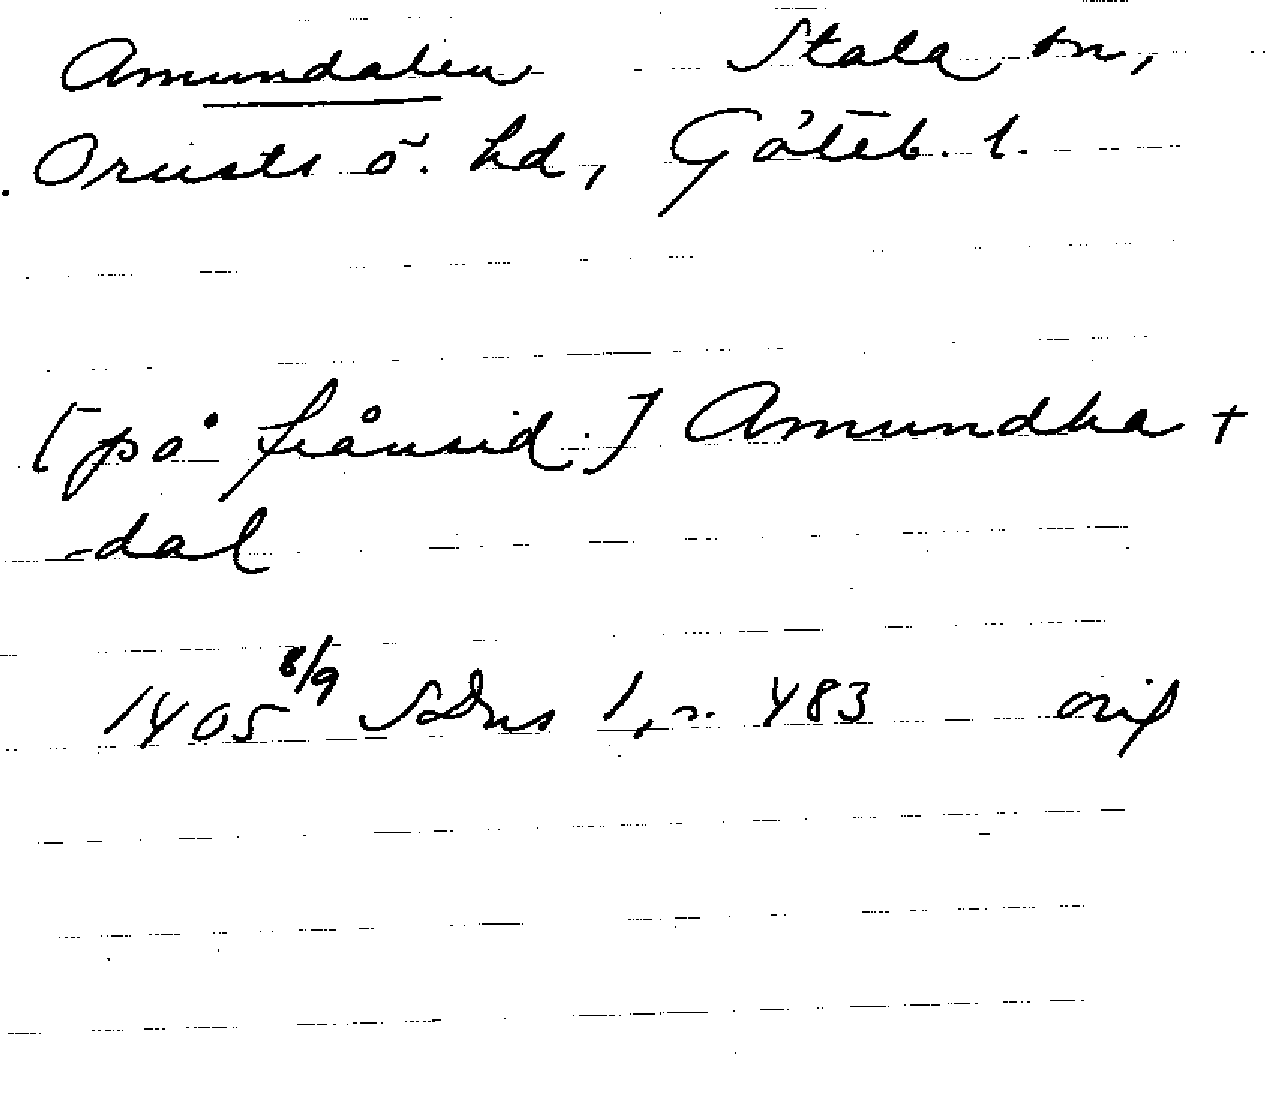 Amundalen Stala sn,
Orusts ö. hd, Göteb. l.
[på frånsid.] Amundha +
-dal
1405 8/9 SDns 1, s. 483 orig